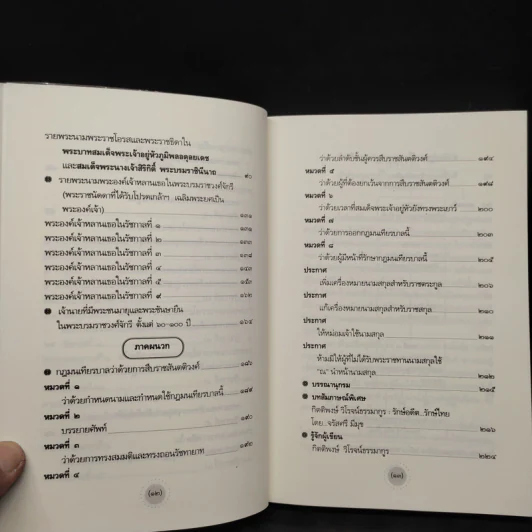 รายพระนามพระราชโอรสและพระราชธิดาใน
พระบาทสมเด็จพระเจ้าอยู่หัวภูมิพลอดุลยเดช
และสมเด็จพระนางเจ้าสิริกิติ์ พระบรมราชินีนาถ ๙๐
รายพระนามพระองค์เจ้าหลานเธอในพระบรมราชวงศ์จักรี
(พระราชนัดดาที่ได้รับโปรดเกล้าฯ เฉลิมพระยศเป็น
พระองค์เจ้า) ๑๓๑
พระองค์เจ้าหลานเธอในรัชกาลที่ ๑ ๑๓๑
พระองค์เจ้าหลานเธอในรัชกาลที่ ๒ ๑๓๔
พระองค์เจ้าหลานเธอในรัชกาลที่ ๓
พระองค์เจ้าหลานเธอในรัชกาลที่ ๔ ๑๔๑
พระองค์เจ้าหลานเธอในรัชกาลที่ ๕ ๑๕๑
พระองค์เจ้าหลานเธอในรัชกาลที่ ๙ ๑๖๒
เจ้านายที่มีพระชนมายุและพระชันษายืน
ในพระบรมราชวงศ์จักรี ตั้งแต่ ๖๐-๑๐๐ ปี ๑๖๔
ภาคผนวก
กฎมณเฑียรบาลว่าด้วยการสืบราชสันตติวงศ์ ๑๘๖
หมวดที่ ๑
ว่าด้วยกำหนดนามและกำหนดใช้กฎมณเฑียรบาลนี้ ๑๘๙
หมวดที่ ๒
บรรยายศัพท์ ๑๙๐
หมวดที่ ๓
ว่าด้วยการทรงสมมติและทรงถอนรัชทายาท ๑๙๒
หมวดที่ ๔
(๑๒)
ว่าด้วยลำดับชั้นผู้ควรสืบราชสันตติวงศ์ ๑๙๔
หมวดที่ ๕
ว่าด้วยผู้ที่ต้องยกเว้นจากการสืบราชสันตติวงศ์ ๑๙๘
หมวดที่ ๖
ว่าด้วยเวลาที่สมเด็จพระเจ้าอยู่หัวยังทรงพระเยาว์ ๒๐๐
หมวดที่ ๗
ว่าด้วยการออกกฎมณเฑียรบาลนี้ ๒๐๓
หมวดที่ ๘
ว่าด้วยผู้มีหน้าที่รักษากฎมณเฑียรบาลนี้ ๒๐๕
ประกาศ
เพิ่มเครื่องหมายนามสกุลสำหรับราชตระกูล ๒๐๖
ประกาศ
แก้เครื่องหมายนามสกุลสำหรับราชสกุล ๒๑๐
ประกาศ
ให้หม่อมเจ้าใช้นามสกุล ๒๑๑
ประกาศ
ห้ามมิให้ผู้ที่ไม่ได้รับพระราชทานนามสกุลใช้
"ณ" นำหน้านามสกุล ๒๑๒
บรรณานุกรม ๒๑๕
บทสัมภาษณ์พิเศษ
กิตติพงษ์ วิโรจน์ธรรมากูร : รักษ์อดีต..รักษ์ไทย
โดย..จรัสศรี มีมุข ๒๑๖
รู้จักผู้เขียน
กิตติพงษ์ วิโรจน์ธรรมากูร ๒๒๔
(๑๓)